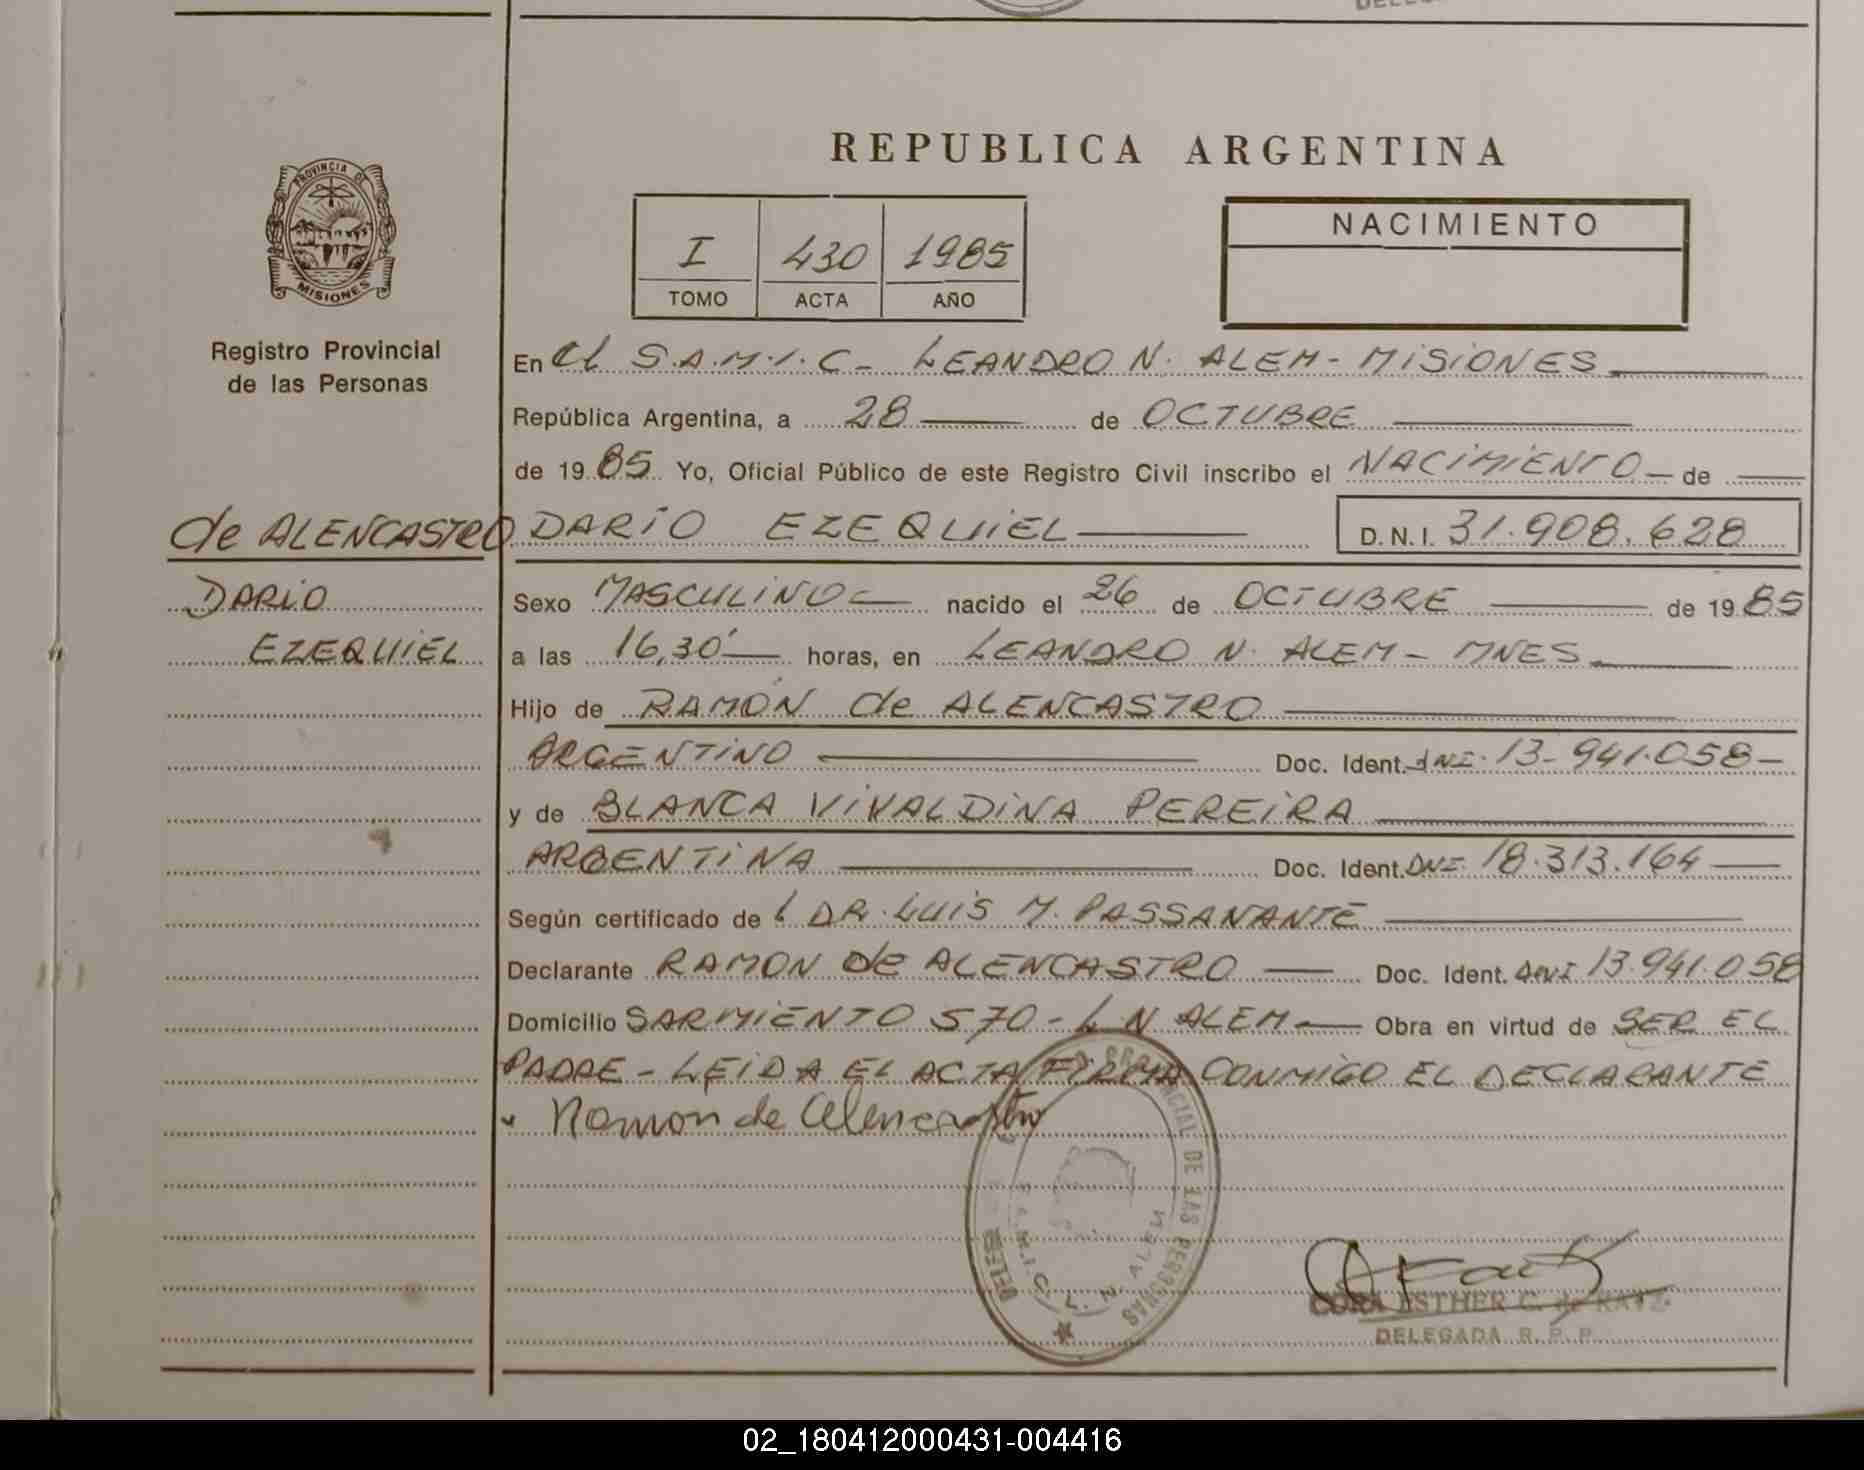 REPUBLICA ARGENTINA
PROVINCIA DE
MISIONES
Registro Provincial
de las Personas
I 430 1985
TOMO ACTA AÑO
NACIMIENTO
En el S.A.M.I.C- LEANDRO N. ALEM- MISIONES
República Argentina, a 28 de OCTUBRE
de 1985 Yo, Oficial Público de este Registro Civil inscribo el NACIMIENTO de
de ALENCASTRO
DARIO
EZEQUIEL
DARIO EZEQUIEL D.N.I. 31.908.628
Sexo MASCULINO nacido el 26 de OCTUBRE de 1985
a las 16,30' horas, en LEANDRO N. ALEM- MNES
Hijo de RAMON de ALENCASTRO
ARGENTINO Doc. Ident. DNI. 13-941.058-
y de BLANCA VIVALDINA PEREIRA
ARGENTINA Doc. Ident. DNI. 18.313.164
Según certificado del DR. LUIS M. PASSANANTE
Declarante RAMON de ALENCASTRO Doc. Ident. DNI 13.941.058
Domicilio SARMIENTO 570- L N ALEM Obra en virtud de SER EL
PADRE- LEIDA EL ACTA FIRMA CONMIGO EL DECLARANTE
Ramon de Alencastro
PROVINCIAL DE LAS PERSONAS
S.A.M.I.C. L. N. ALEM
CORA ESTHER C. de KATZ
DELEGADA R. P. P.
02_180412000431-004416